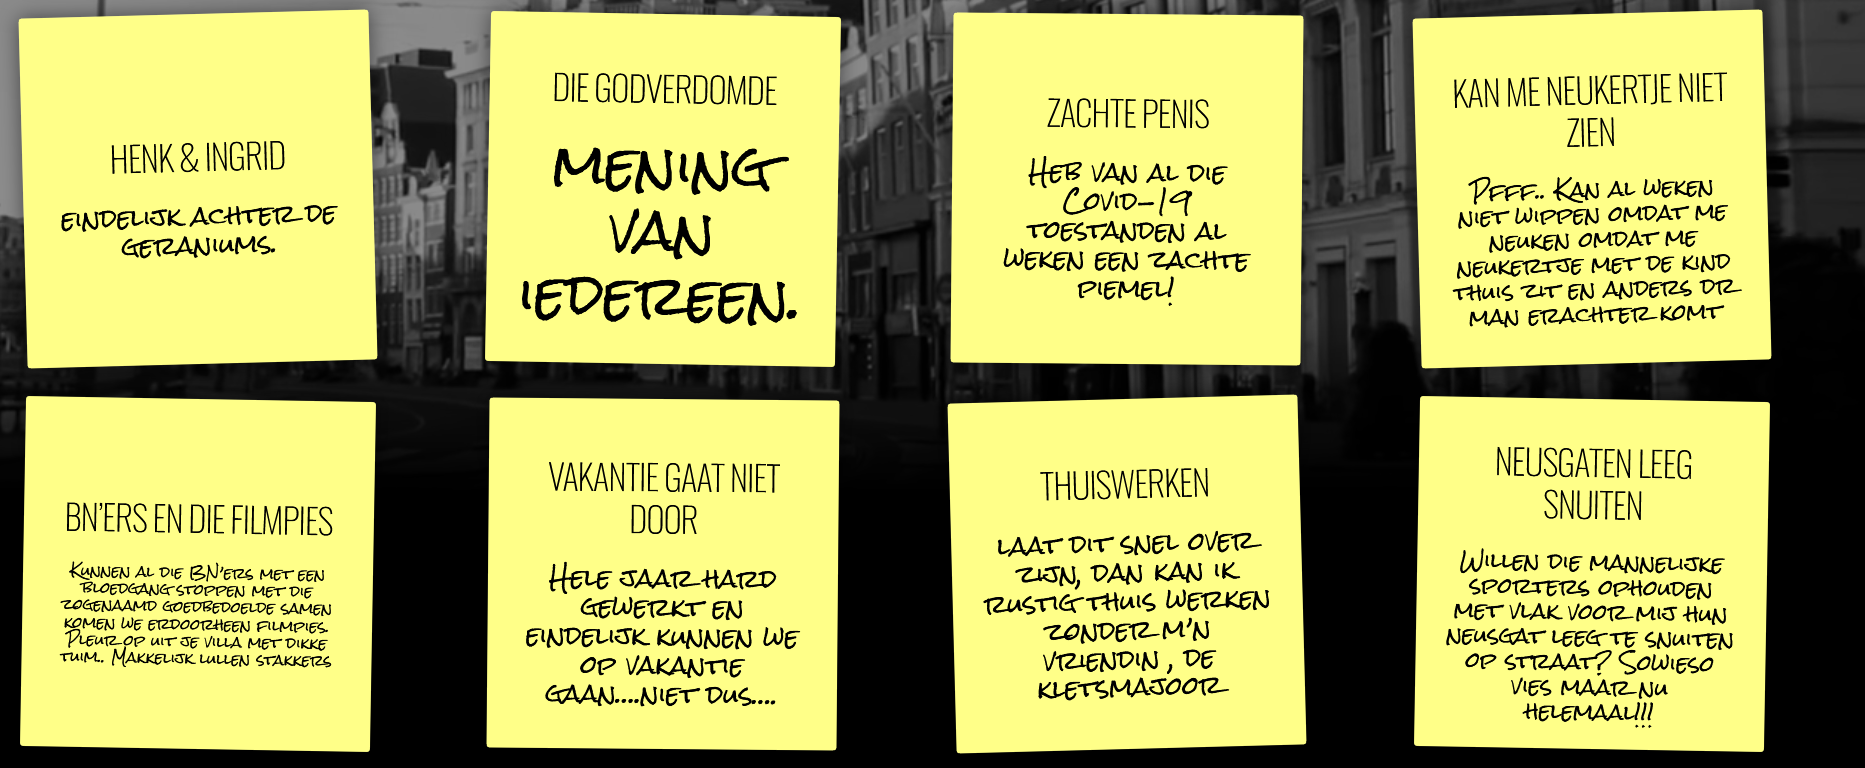 HENK & INGRID
EINDELIJK ACHTER DE
GERANIUMS.
DIE GODVERDOMDE
MENING
VAN
IEDEREEN.
ZACHTE PENIS
HEB VAN AL DIE
COVID-19
TOESTANDEN AL
WEKEN EEN ZACHTE
PIEMEL!
KAN ME NEUKERTJE NIET
ZIEN
PFFF.. KAN AL WEKEN
NIET WIPPEN OMDAT ME
NEUKEN OMDAT ME
NEUKERTJE MET DE KIND
THUIS ZIT EN ANDERS DR
MAN ERACHTER KOMT
BN'ERS EN DIE FILMPIES
KUNNEN AL DIE BN'ERS MET EEN
BLOEDGANG STOPPEN MET DIE
ZOGENAAMD GOEDBEDOELDE SAMEN
KOMEN WE ERDOORHEEN FILMPIES.
PLEUR OP UIT JE VILLA MET DIKKE
TUIM.. MAKKELIJK LULLEN STAKKERS
VAKANTIE GAAT NIET
DOOR
HELE JAAR HARD
GEWERKT EN
EINDELIJK KUNNEN WE
OP VAKANTIE
GAAN....NIET DUS....
THUISWERKEN
LAAT DIT SNEL OVER
ZIJN, DAN KAN IK
RUSTIG THUIS WERKEN
ZONDER M'N
VRIENDIN , DE
KLETSMAJOOR
NEUSGATEN LEEG
SNUITEN
WILLEN DIE MANNELIJKE
SPORTERS OPHOUDEN
MET VLAK VOOR MIJ HUN
NEUSGAT LEEG TE SNUITEN
OP STRAAT? SOWIESO
VIES MAAR NU
HELEMAAL!!!